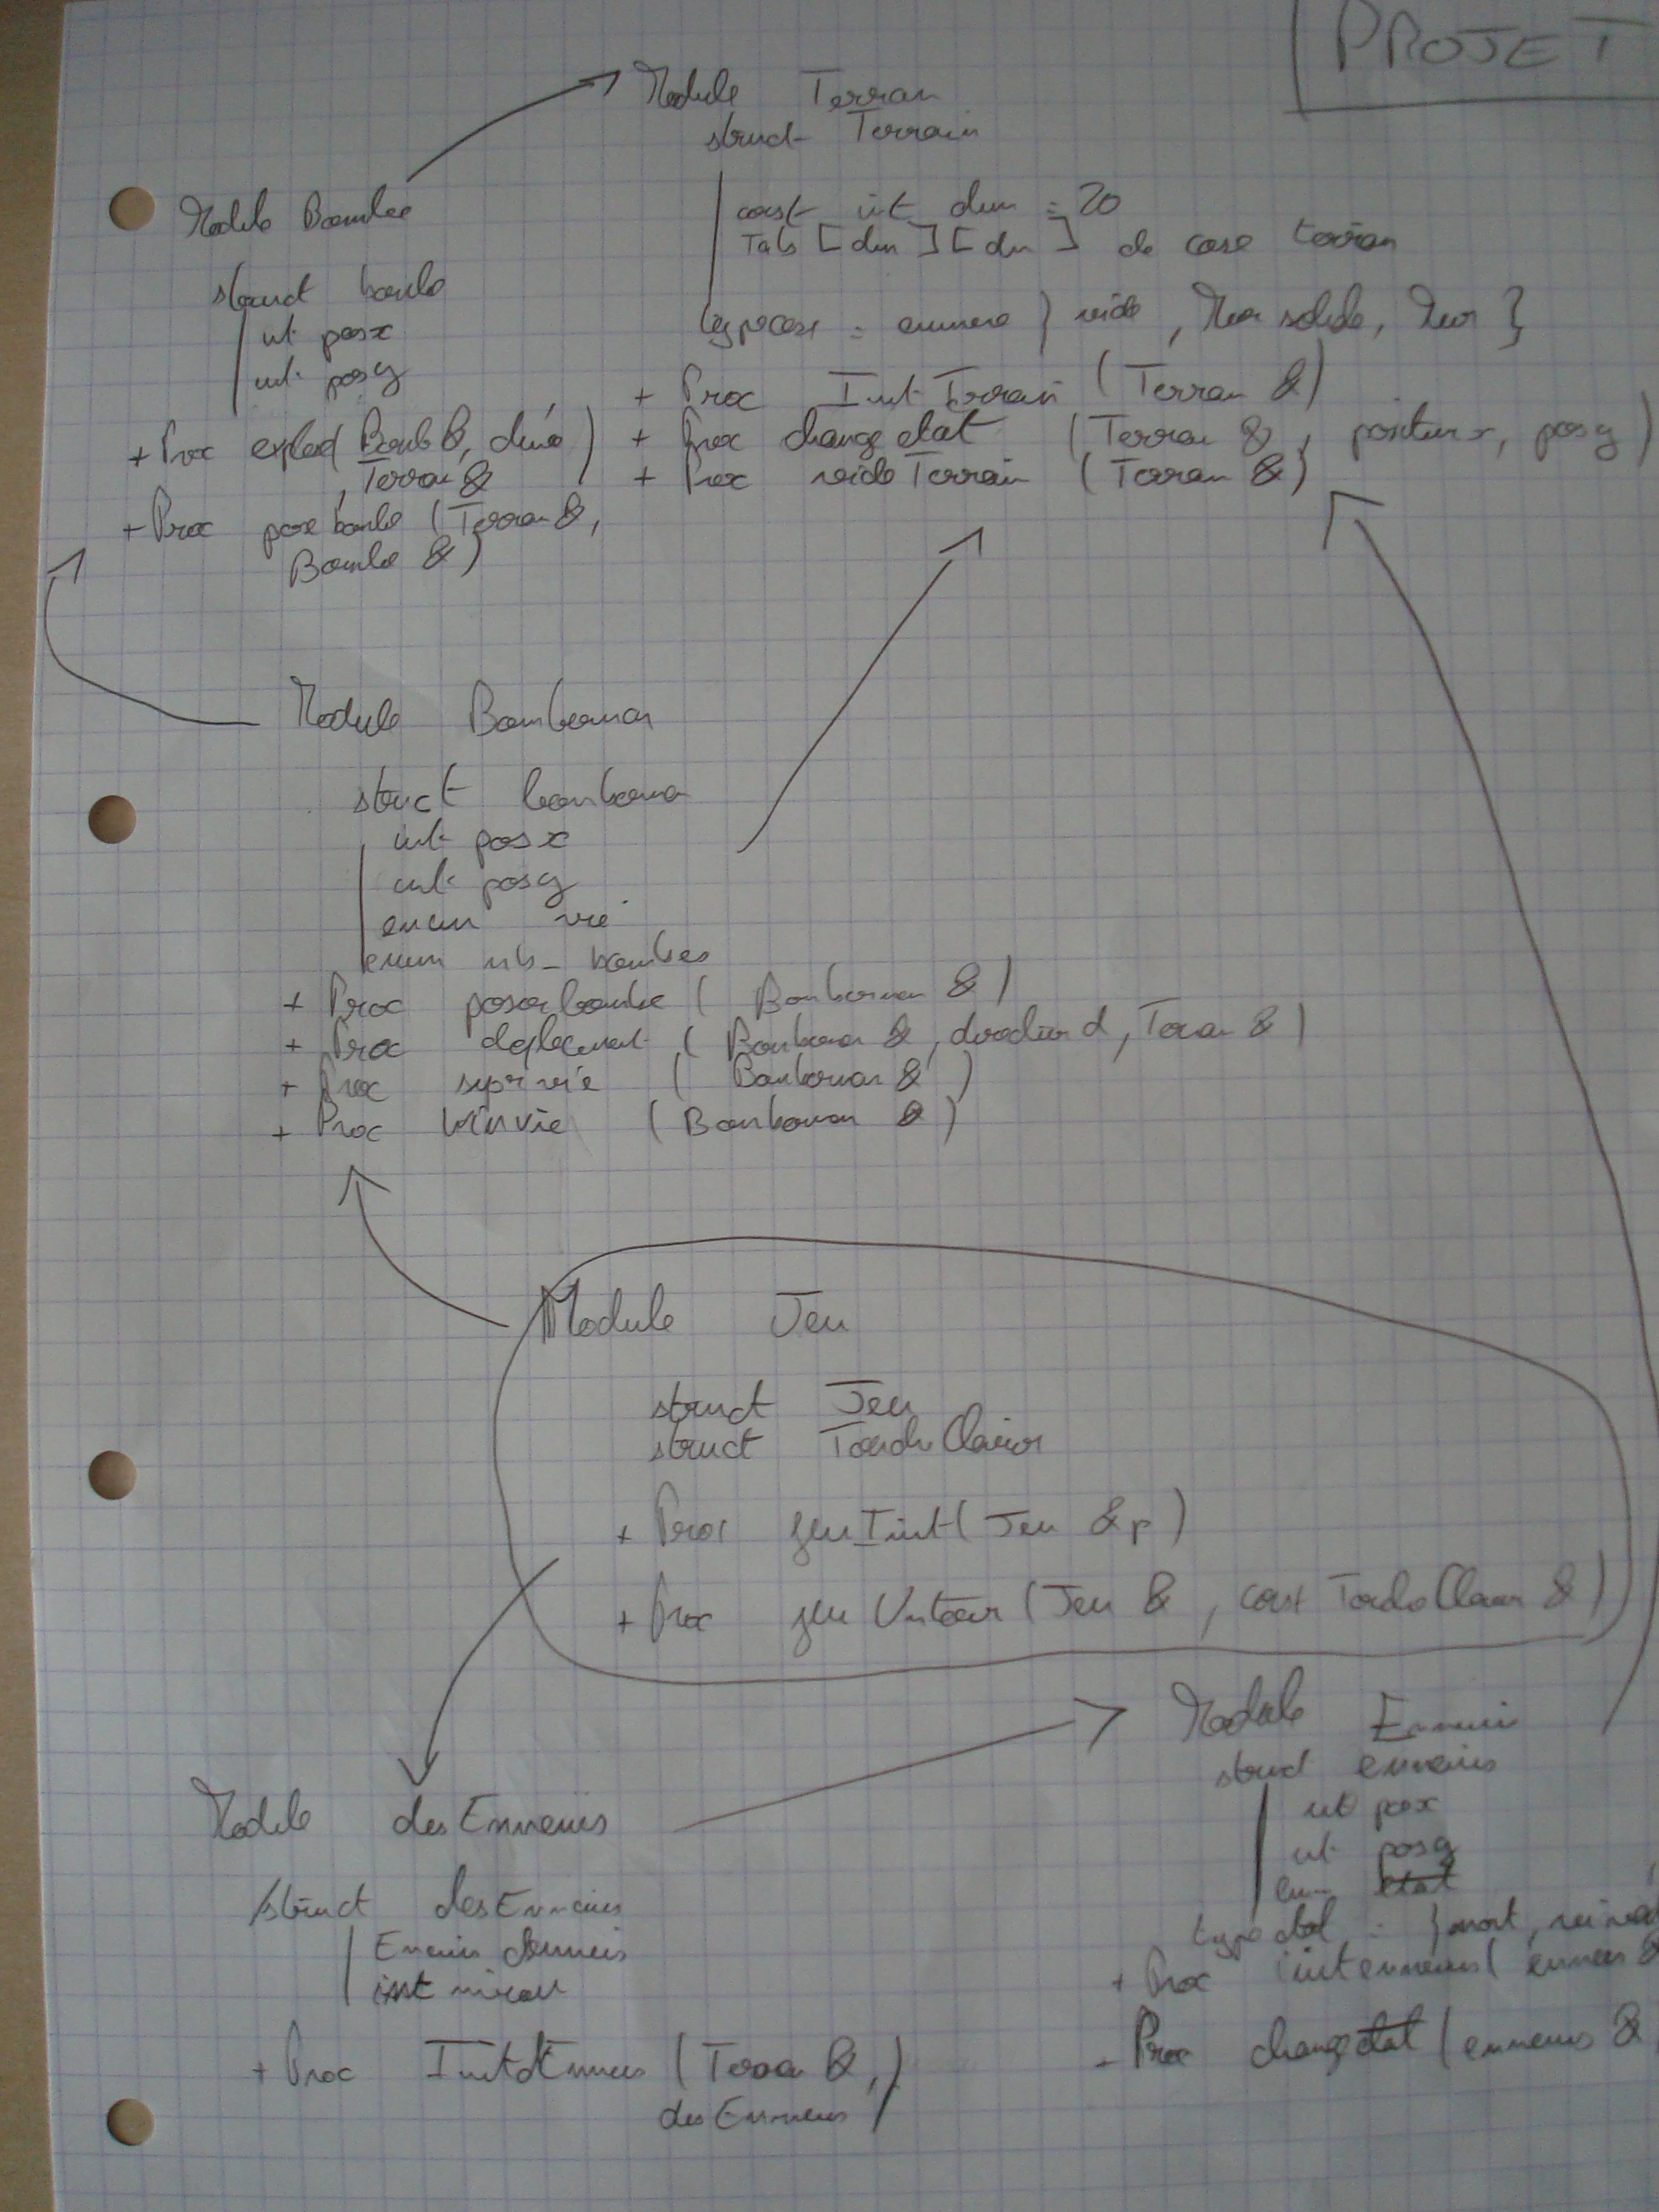 PROJET
Module Terrain
struct Terrain
const int dim = 20
Tab [dim] [dim] de case terrain
typecase = enumere { vide, Mur solide, Mur }
+ Proc Init Terrain (Terrain &)
+ Proc change etat (Terrain &, position x, pos y)
+ Proc vide Terrain (Terrain &)
Module Bombe
struct bombe
int posx
int posy
+ Proc explod (Bomb B,
, Terrain &)
+ Proc pose bombe (Terrain &,
Bombe &)
Module Bomberman
struct bomberman
int posx
int posy
enum vie
enum nb_bombes
+ Proc poserbombe (Bomberman &)
+ Proc deplacement (Bomberman &, direction d, Terrain &)
+ Proc suprvie (Bomberman &)
+ Proc WinVie (Bomberman &)
Module Jeu
struct Jeu
struct ToucheClavier
+ Proc jeuInit (Jeu &p)
+ Proc jeu Untour (Jeu &, const ToucheClavier &)
Module Ennemis
struct ennemis
int posx
int posy
enum etat
type etat = { mort,
+ Proc initennemis ( ennemis &
- Proc changetat ( ennemis &
Module desEnnemis
struct desEnnemis
Ennemis dennemis
int niveau
+ Proc InitdEnnemis (Terrain &,
desEnnemis)